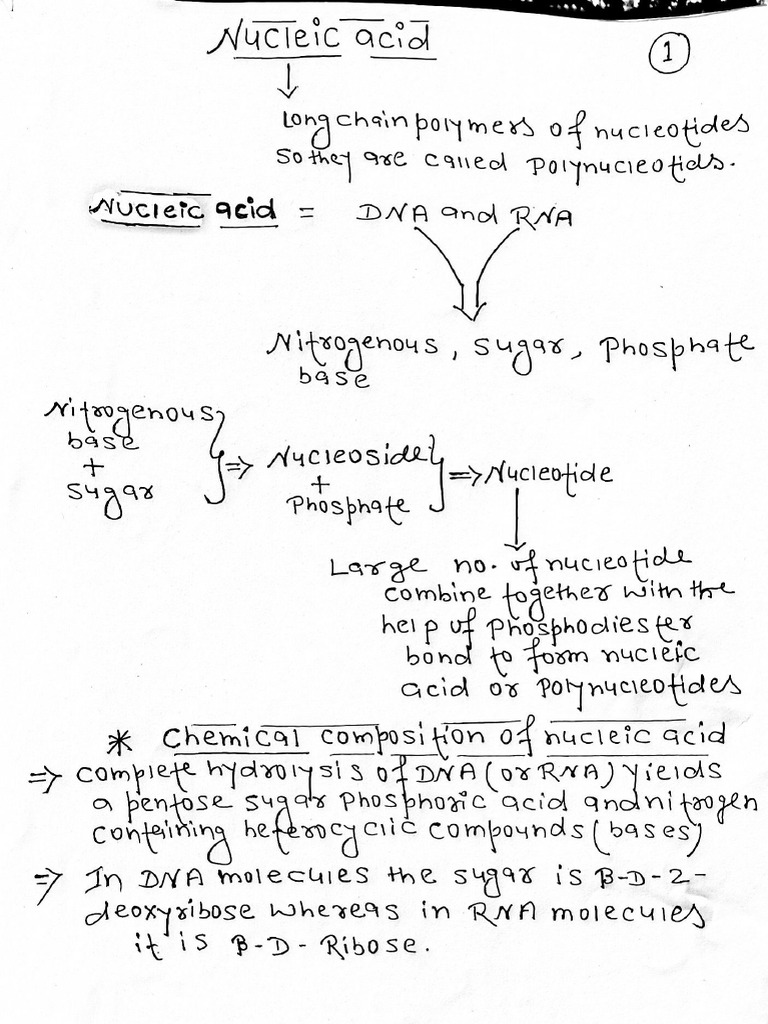 Nucleic acid
①
↓
Long chain polymers of nucleotides
So they are called Polynucleotids.
Nucleic acid = DNA and RNA
Nitrogenous, Sugar, Phosphate
base
Nitrogenous
base
+
Sugar
⇒ Nucleoside
+
Phosphate
⇒ Nucleotide
↓
Large no. of nucleotide
combine together with the
help of Phosphodiester
bond to form nucleic
acid or Polynucleotides
* Chemical composition of nucleic acid
⇒ complete hydrolysis of DNA (or RNA) yields
a pentose sugar Phosphoric acid and nitrogen
containing heterocyclic compounds (bases)
⇒ In DNA molecules the sugar is β-D-2-
deoxyribose whereas in RNA molecules
it is β-D-Ribose.